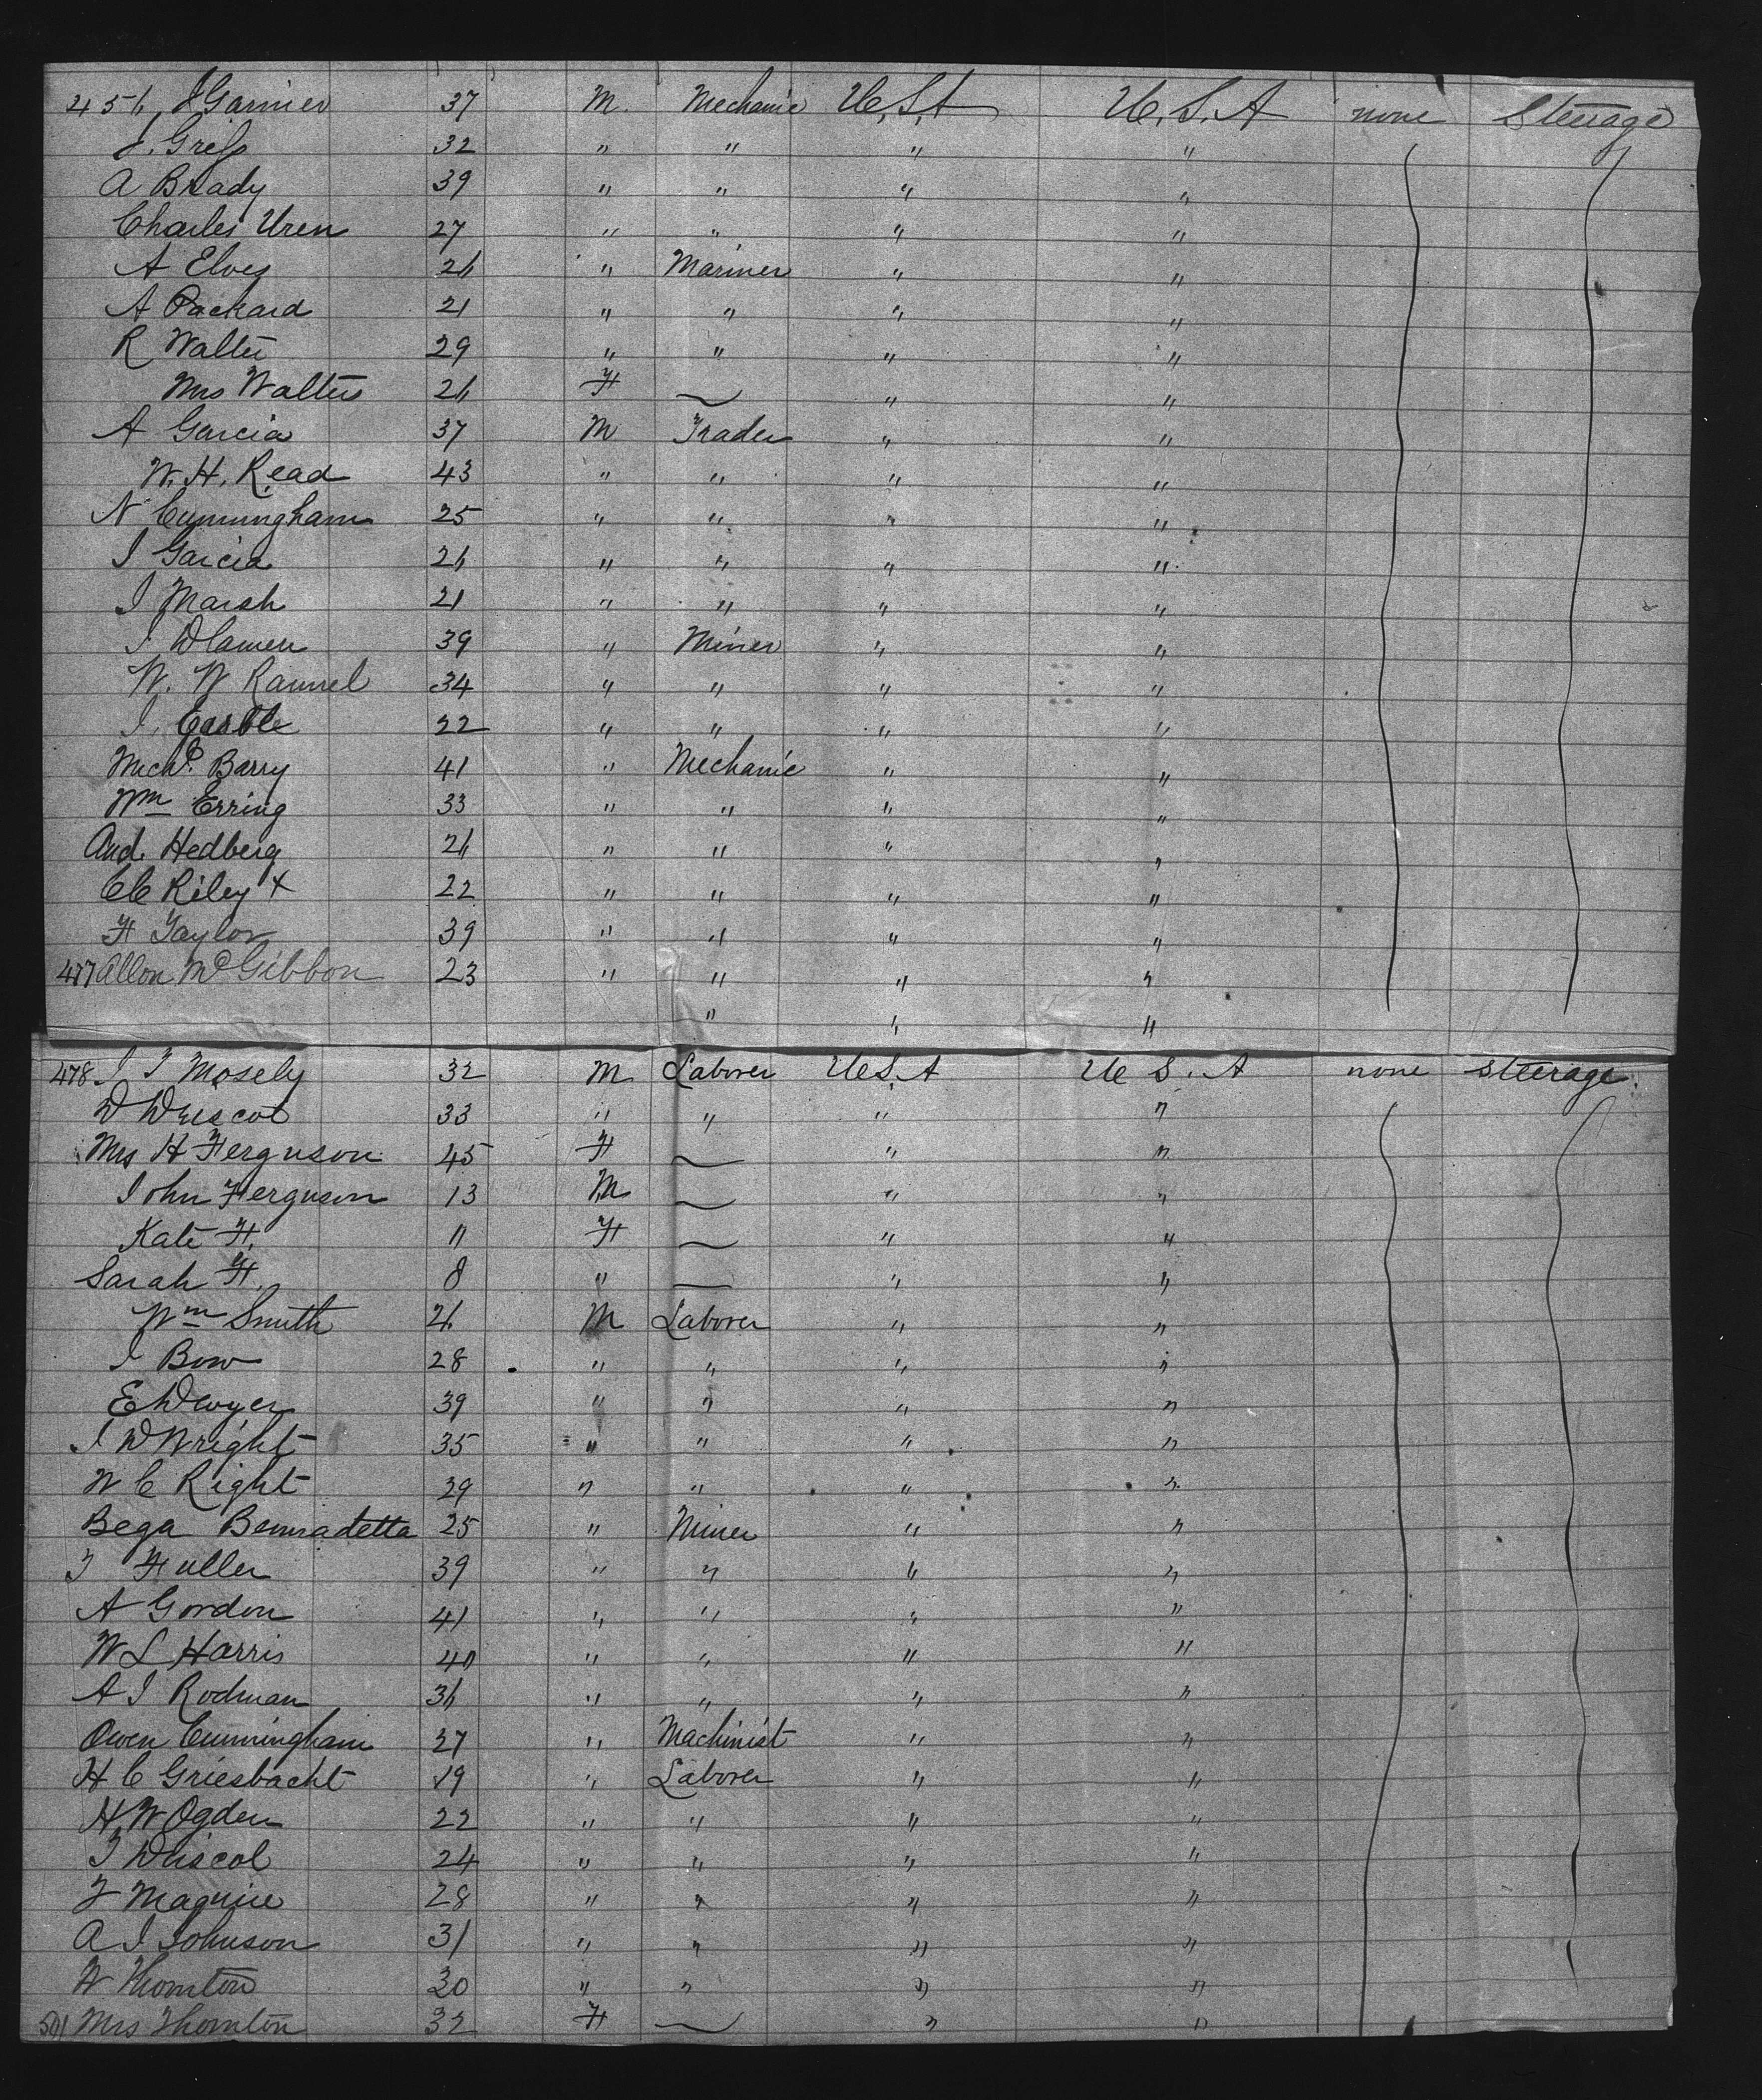 456 J Garnier 37 M. Mechanic U.S.A U.S.A none Steerage
J. Gress 32 " " " "
A Brady 39 " " " "
Charles Uren 27 " " " "
A Elvey 26 " Mariner " "
A Packard 21 " " " "
R Walter 29 " " " "
Mrs Walters 26 F — " "
A Garcia 37 M Trader " "
W. H. Read 43 " " " "
N Cunningham 25 " " " "
J Garcia 26 " " " "
J Marsh 21 " " " "
J 39 " Miner " "
W. W Rammel 34 " " " "
J. Castle 22 " " " "
Michl. Barry 41 " Mechanic " "
Wm Erring 33 " " " "
And. Hedberg 26 " " " "
C C Riley + 22 " " " "
F Taylor 39 " " " "
477 Allon McGibbon 23 " " " "
" " "
478 J T Mosely 32 M Laborer U S. A U S. A none steerage
D Driscol 33 " " " "
Mrs H Ferguson 45 F — " "
John Ferguson 13 M — " "
Kate F. 11 F — " "
Sarah F. 8 " — " "
Wm Smith 26 M Laborer " "
J Bow 28 " " " "
E Dwyer 39 " " " "
J D Wright 35 " " " "
W C Right 29 " " " "
Bega Bernadetta 25 " Miner " "
T Fuller 39 " " " "
A Gordon 41 " " " "
W L Harris 40 " " " "
A J Rodman 36 " " " "
Owen Cunningham 27 " Machinist " "
H C Griesbacht 19 " Laborer " "
H W Ogden 22 " " " "
T Driscol 24 " " " "
T Maguire 28 " " " "
A J Johnson 31 " " " "
W Thornton 30 " " " "
501 Mrs Thornton 32 F — " "